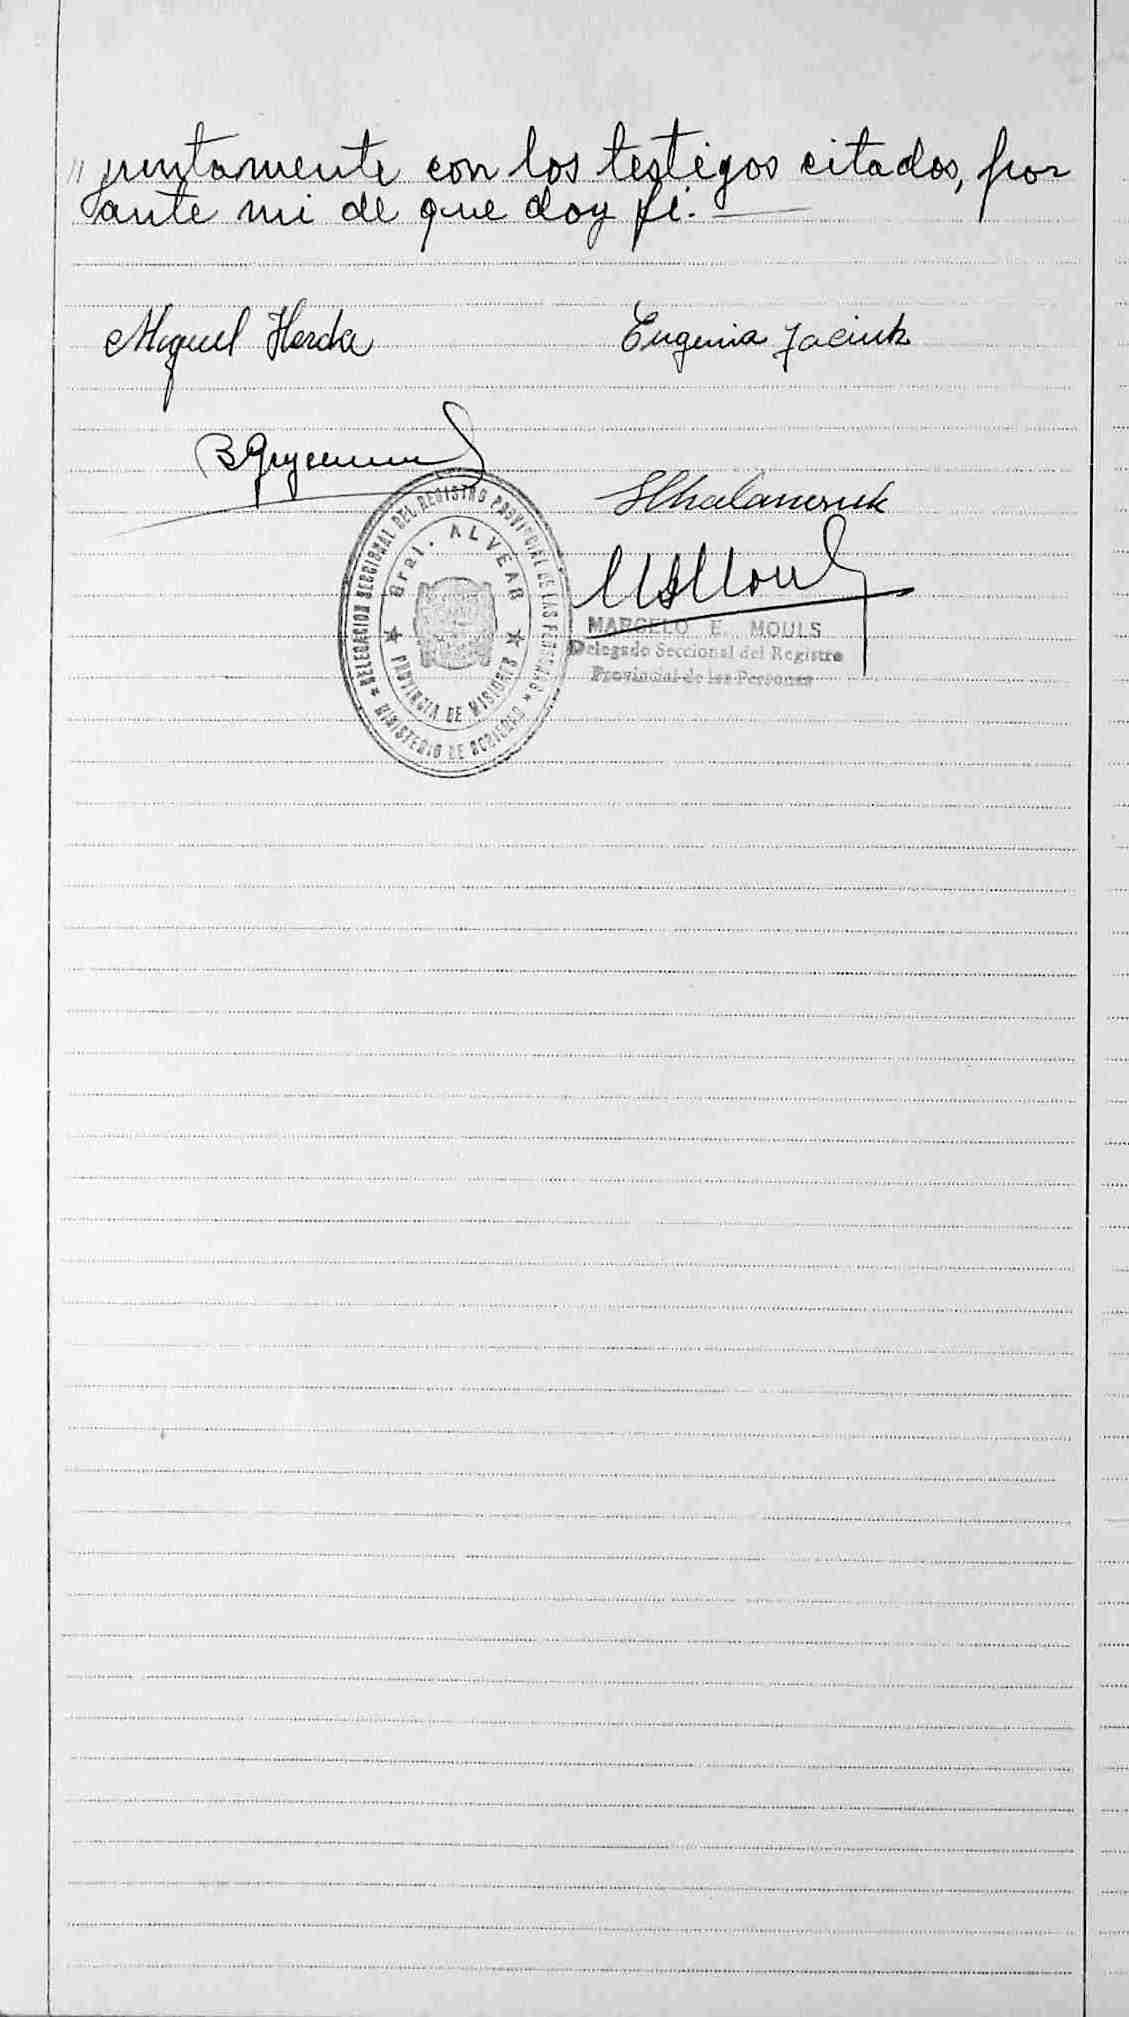 // juntamente con los testigos citados, por
ante mi de que doy fé.
Miguel Horda
Eugenia Jaciuk
DELEGACION SECCIONAL DEL REGISTRO PROVINCIAL DE LAS PERSONAS
Gral. ALVEAR
PROVINCIA DE MISIONES
MINISTERIO DE GOBIERNO
MARCELO E. MOULS
Delegado Seccional del Registro
Provincial de las Personas